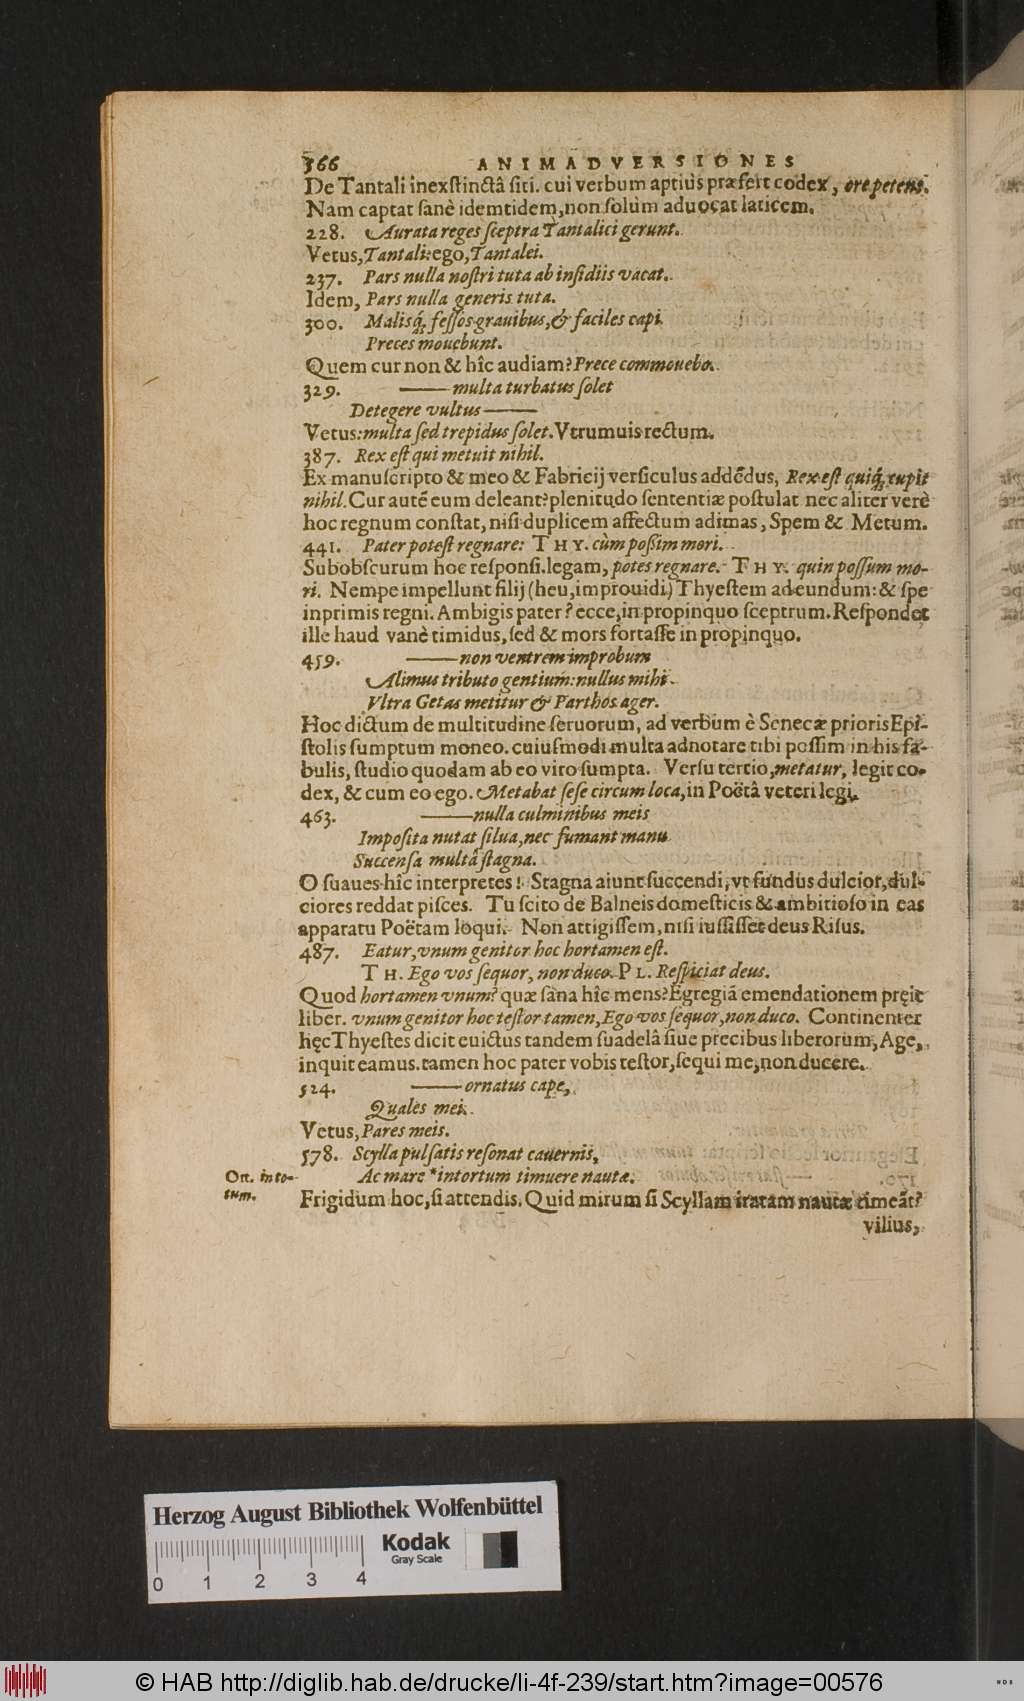 366 ANIMADVERSIONES
De Tantali inexſtinctâ ſiti. cui verbum aptius præfert codex, ore petens.
Nam captat ſanè idemtidem, non ſolùm aduocat laticem.
228. Aurata reges ſceptra Tantalici gerunt.
Vetus, Tantali: ego, Tantalei.
237. Pars nulla noſtri tuta ab inſidiis vacat.
Idem, Pars nulla generis tuta.
300. Malisq́; feſſos grauibus, & faciles capi
Preces mouebunt.
Quem cur non & hîc audiam? Prece commouebo.
329. —— multa turbatus ſolet
Detegere vultus ——
Vetus: multa ſed trepidus ſolet. Vtrumuis rectum.
387. Rex eſt qui metuit nihil.
Ex manuſcripto & meo & Fabricij verſiculus addēdus, Rex eſt quiq́; cupit
nihil. Cur autē eum deleant? plenitudo ſententiæ poſtulat nec aliter verè
hoc regnum conſtat, niſi duplicem affectum adimas, Spem & Metum.
441. Pater poteſt regnare: THY. cùm poſſim mori.
Subobſcurum hoc reſponſi. legam, potes regnare. THY. quin poſſum mo-
ri. Nempe impellunt filij (heu, improuidi) Thyeſtem adeundum: & ſpe
inprimis regni. Ambigis pater? ecce, in propinquo ſceptrum. Reſpondet
ille haud vanè timidus, ſed & mors fortaſſe in propinquo.
459. —— non ventrem improbum
Alimus tributo gentium: nullus mihi
Vltra Getas metitur & Parthos ager.
Hoc dictum de multitudine ſeruorum, ad verbum è Senecæ prioris Epi-
ſtolis ſumptum moneo. cuiuſmodi multa adnotare tibi poſſim in his fa-
bulis, ſtudio quodam ab eo viro ſumpta. Verſu tertio, metatur, legit co-
dex, & cum eo ego. Metabat ſeſe circum loca, in Poëtâ veteri legi.
463. —— nulla culminibus meis
Impoſita nutat ſilua, nec fumant manu
Succenſa multâ ſtagna.
O ſuaues hîc interpretes! Stagna aiunt ſuccendi, vt fundus dulcior, dul-
ciores reddat piſces. Tu ſcito de Balneis domeſticis & ambitioſo in eas
apparatu Poëtam loqui. Non attigiſſem, niſi iuſſiſſet deus Riſus.
487. Eatur, vnum genitor hoc hortamen eſt.
TH. Ego vos ſequor, non duco. PL. Reſpiciat deus.
Quod hortamen vnum? quæ ſana hîc mens? Egregiā emendationem pręit
liber. vnum genitor hoc teſtor tamen, Ego vos ſequor, non duco. Continenter
hęc Thyeſtes dicit euictus tandem ſuadelâ ſiue precibus liberorum, Age,
inquit eamus. tamen hoc pater vobis teſtor, ſequi me, non ducere.
524. —— ornatus cape,
Quales mei.
Vetus, Pares meis.
578. Scylla pulſatis reſonat cauernis,
Ac mare *intortum timuere nautæ.
Ott. into-
tum.
Frigidum hoc, ſi attendis. Quid mirum ſi Scyllam iratam nautæ timeāt?
vilius,
Herzog August Bibliothek Wolfenbüttel
Kodak
Gray Scale
0 1 2 3 4
© HAB http://diglib.hab.de/drucke/li-4f-239/start.htm?image=00576